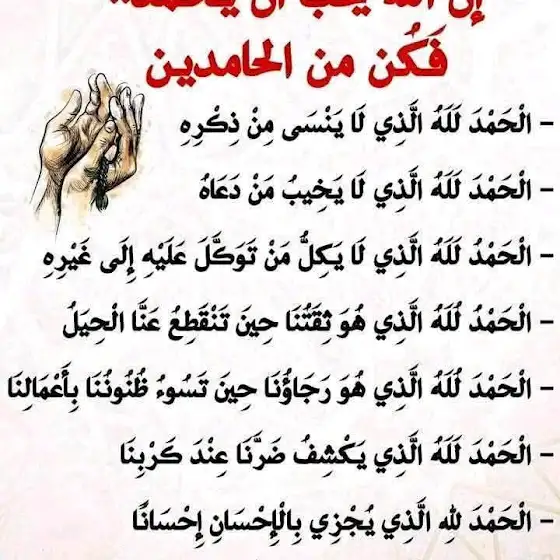 إن الله يحب أن يحمد..
فَكُن من الحامدين
- الْحَمْدَ لَلَهُ الَّذِي لَا يَنْسَى مِنْ ذِكْرِهِ
- الْحَمْدَ لَلَهُ الَّذِي لَا يَخِيبُ مَنْ دَعَاهُ
- الْحَمْدُ لَلَهُ الَّذِي لَا يَكِلُّ مَنْ تَوَكَّلَ عَلَيْهِ إِلَى غَيْرِهِ
- الْحَمْدُ لُلَهُ الَّذِي هُوَ ثِقَتُنَا حِينَ تَنْقَطِعُ عَنَّا الْحِيَلُ
- الْحَمْدَ لُلَهُ الَّذِي هُوَ رَجَاؤُنَا حِينَ تَسُوءُ ظُنُونُنَا بِأَعْمَالِنَا
- الْحَمْدَ لَلَهُ الَّذِي يَكْشِفُ ضَرَّنَا عِنْدَ كَرْبِنَا
- الْحَمْدَ لِلهِ الَّذِي يُجْزِي بِالْإِحْسَانِ إِحْسَانًا